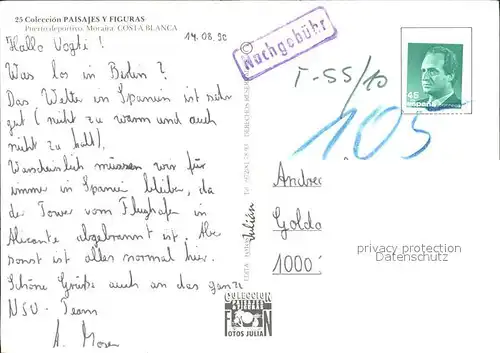 25 Colección PAISAJES Y FIGURAS
Puerto deportivo. Moraira. COSTA BLANCA
14.08.90
Hallo Vogti!
Was los in Berlin?
Das Wetter in Spanien ist sehr
gut (nicht zu warm und auch
nicht zu kalt).
Warscheinlich müssen wir für
immer in Spanien bleiben, da
der Tower vom Flughafen in
Alicante abgebrannt ist. Aber
sonst ist alles normal hier.
Schöne Grüße auch an das ganze
NSU-Team
A.
Nachgebühr
T-55/10
105
45
España
Andrec
Goldo
1000
privacy protection
Datenschutz
Julián
COLECCION
FOTOS JULIAN